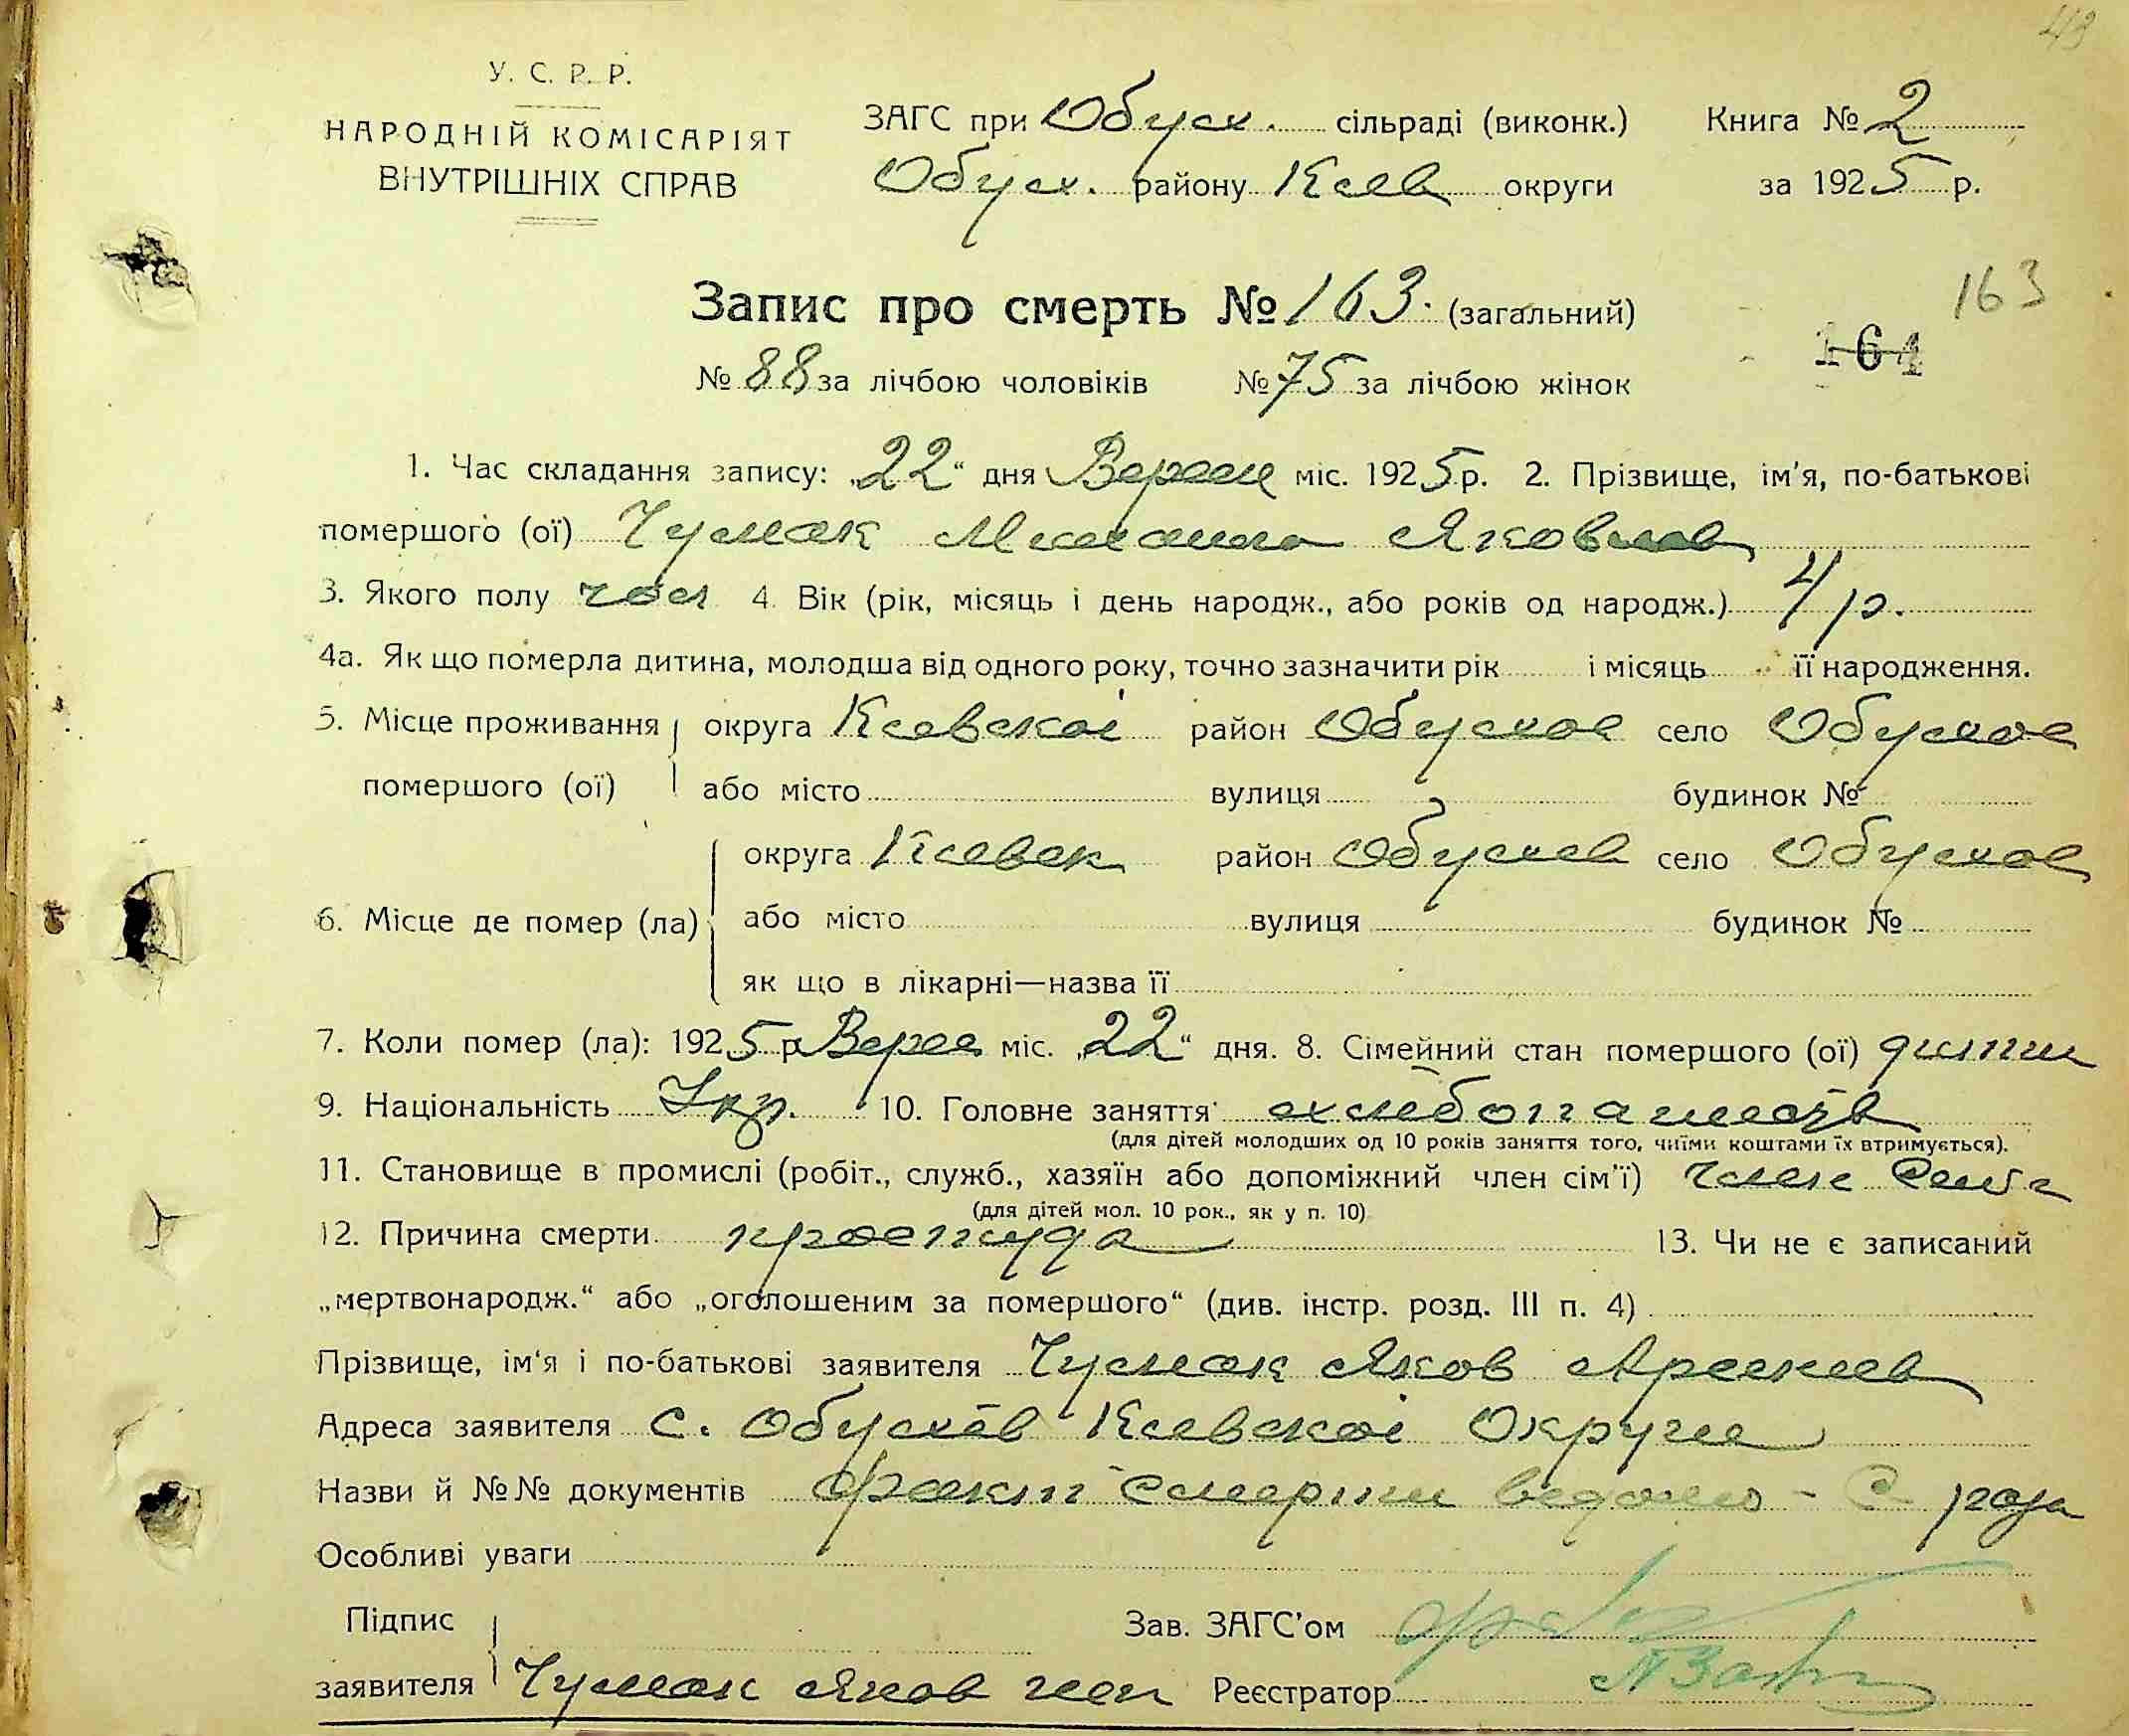 43
У. С. Р. Р.
НАРОДНІЙ КОМІСАРІЯТ
ВНУТРІШНІХ СПРАВ
ЗАГС при Обух. сільраді (виконк.) Книга № 2
Обух. району Киев округи за 1925 р.
Запис про смерть № 163. (загальний)
163
164
№ 88 за лічбою чоловіків № 75 за лічбою жінок
1. Час складання запису: „22“ дня Верес міс. 1925 р. 2. Прізвище, ім'я, по-батькові
помершого (ої) Чумак Михаила Яковлев
3. Якого полу чол 4. Вік (рік, місяць і день народж., або років од народж.) 4 р.
4а. Як що померла дитина, молодша від одного року, точно зазначити рік і місяць її народження.
5. Місце проживання округа Киевскоі район Обухов село Обухов
помершого (ої) або місто вулиця будинок №
округа Киевск район Обухов село Обухов
6. Місце де помер (ла) або місто вулиця будинок №
як що в лікарні—назва її
7. Коли помер (ла): 1925 р. Верес міс. „22“ дня. 8. Сімейний стан помершого (ої) дитин
9. Національність Укр. 10. Головне заняття хлебопашетв
(для дітей молодших од 10 років заняття того, чиїми коштами їх втримується).
11. Становище в промислі (робіт., служб., хазяїн або допоміжний член сім'ї) член
(для дітей мол. 10 рок., як у п. 10)
12. Причина смерти простуда 13. Чи не є записаний
„мертвонародж.“ або „оголошеним за помершого“ (див. інстр. розд. III п. 4)
Прізвище, ім'я і по-батькові заявителя Чумак Яков Арсениев
Адреса заявителя с. Обухів Киевскоі Округи
Назви й №№ документів факт смерти ведомо - С рада
Особливі уваги
Підпис Зав. ЗАГС'ом
заявителя Чумак Яков Реєстратор